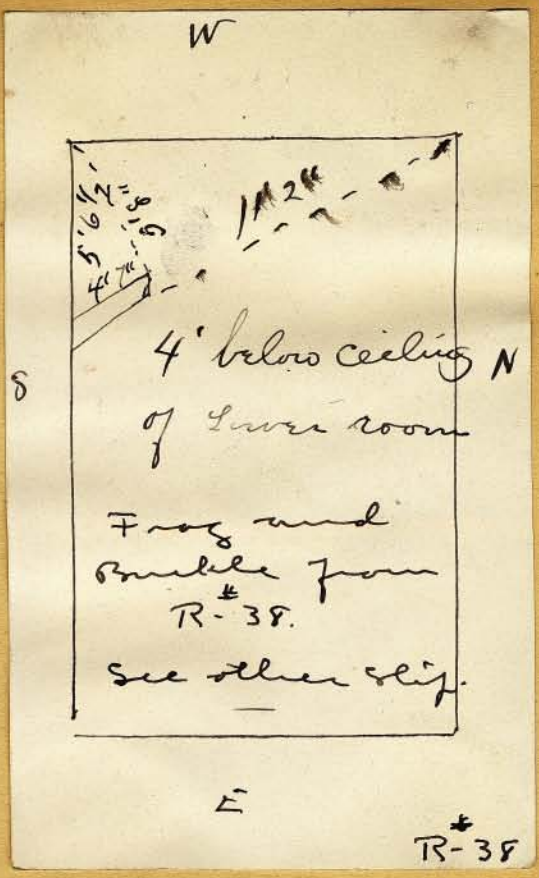 W
5' 6 1/2"
4' 7"
4' below ceiling
of Lower room
S
N
Frog and
Buckle from
R-#38.
See other slip.
E
R-#38